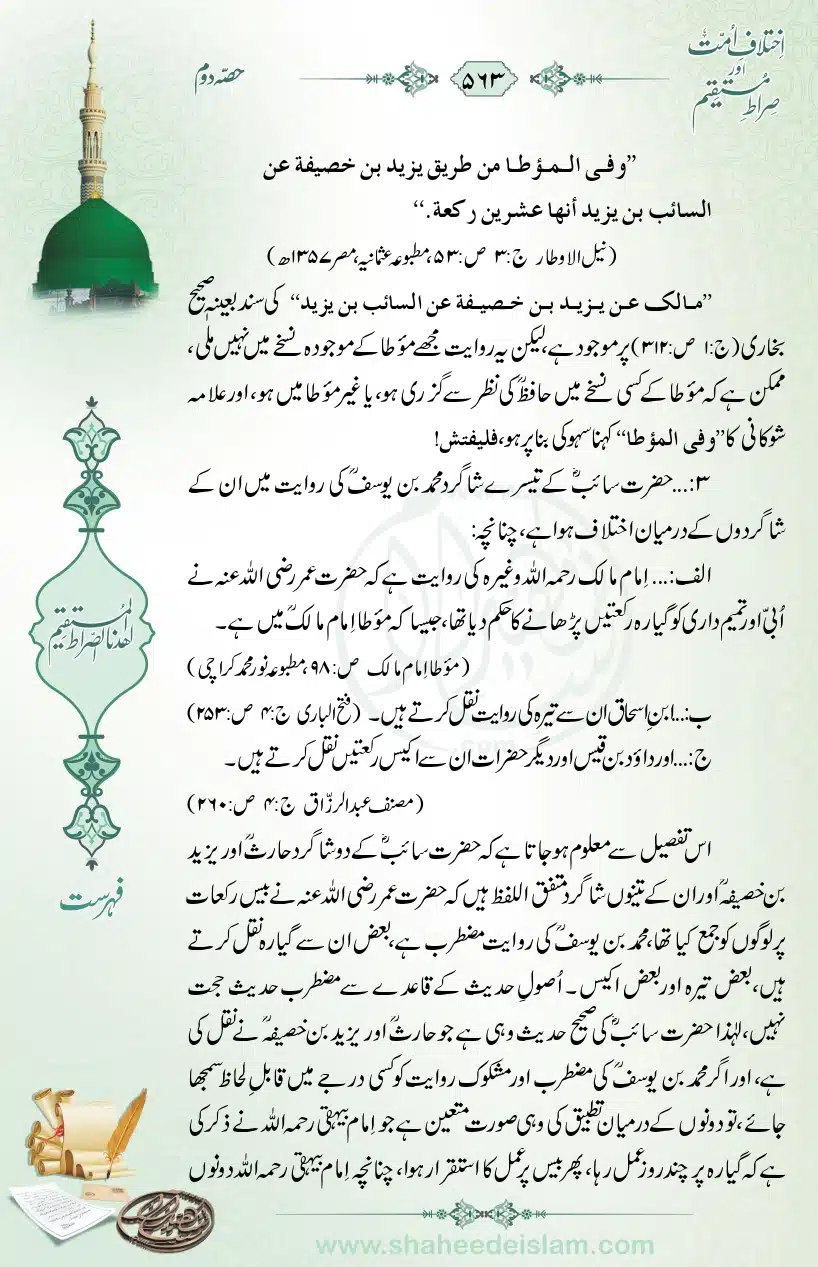 اِختلافِ اُمّت
اور
صِراطِ مُستقیم
۵۶۳
حصّہ دوم
”وفی الـمـؤطـا من طریق یزید بن خصیفة عن
السائب بن یزید أنھا عشرین رکعة.“
(نیل الاوطار ج:۳ ص:۵۳، مطبوعہ عثمانیہ، مصر ۱۳۵۷ھ)
”مالک عن یزید بن خصیفة عن السائب بن یزید“ کی سند بعینہٖ صحیح
بخاری (ج:۱ ص:۳۱۲) پر موجود ہے، لیکن یہ روایت مجھے مؤطا کے موجودہ نسخے میں نہیں ملی،
ممکن ہے کہ مؤطا کے کسی نسخے میں حافظؒ کی نظر سے گزری ہو، یا غیر مؤطا میں ہو، اور علامہ
شوکانی کا ”وفی المؤطا“ کہنا سہو کی بنا پر ہو، فلیفتش!
۳:...حضرت سائبؓ کے تیسرے شاگرد محمد بن یوسفؒ کی روایت میں ان کے
شاگردوں کے درمیان اختلاف ہوا ہے، چنانچہ:
الف:...اِمام مالک رحمہ اللہ وغیرہ کی روایت ہے کہ حضرت عمر رضی اللہ عنہ نے
اُبیّ اور تمیم داری کو گیارہ رکعتیں پڑھانے کا حکم دیا تھا، جیسا کہ مؤطا اِمام مالکؒ میں ہے۔
(مؤطا اِمام مالک ص:۹۸، مطبوعہ نور محمد کراچی)
ب:...ابنِ اِسحاق ان سے تیرہ کی روایت نقل کرتے ہیں۔ (فتح الباری ج:۴ ص:۲۵۳)
ج:...اور داؤد بن قیس اور دیگر حضرات ان سے اکیس رکعتیں نقل کرتے ہیں۔
(مصنف عبدالرزّاق ج:۴ ص:۲۶۰)
اس تفصیل سے معلوم ہوجاتا ہے کہ حضرت سائبؓ کے دو شاگرد حارثؒ اور یزید
بن خصیفہؒ اور ان کے تینوں شاگرد متفق اللفظ ہیں کہ حضرت عمر رضی اللہ عنہ نے بیس رکعات
پر لوگوں کو جمع کیا تھا، محمد بن یوسفؒ کی روایت مضطرب ہے، بعض ان سے گیارہ نقل کرتے
ہیں، بعض تیرہ اور بعض اکیس۔ اُصولِ حدیث کے قاعدے سے مضطرب حدیث حجت
نہیں، لہٰذا حضرت سائبؓ کی صحیح حدیث وہی ہے جو حارثؒ اور یزید بن خصیفہؒ نے نقل کی
ہے، اور اگر محمد بن یوسفؒ کی مضطرب اور مشکوک روایت کو کسی درجے میں قابلِ لحاظ سمجھا
جائے، تو دونوں کے درمیان تطبیق کی وہی صورت متعین ہے جو اِمام بیہقی رحمہ اللہ نے ذکر کی
ہے کہ گیارہ پر چند روز عمل رہا، پھر بیس پر عمل کا استقرار ہوا، چنانچہ اِمام بیہقی رحمہ اللہ دونوں
اھدنا الصراط المستقیم
فہرست
www.shaheedeislam.com